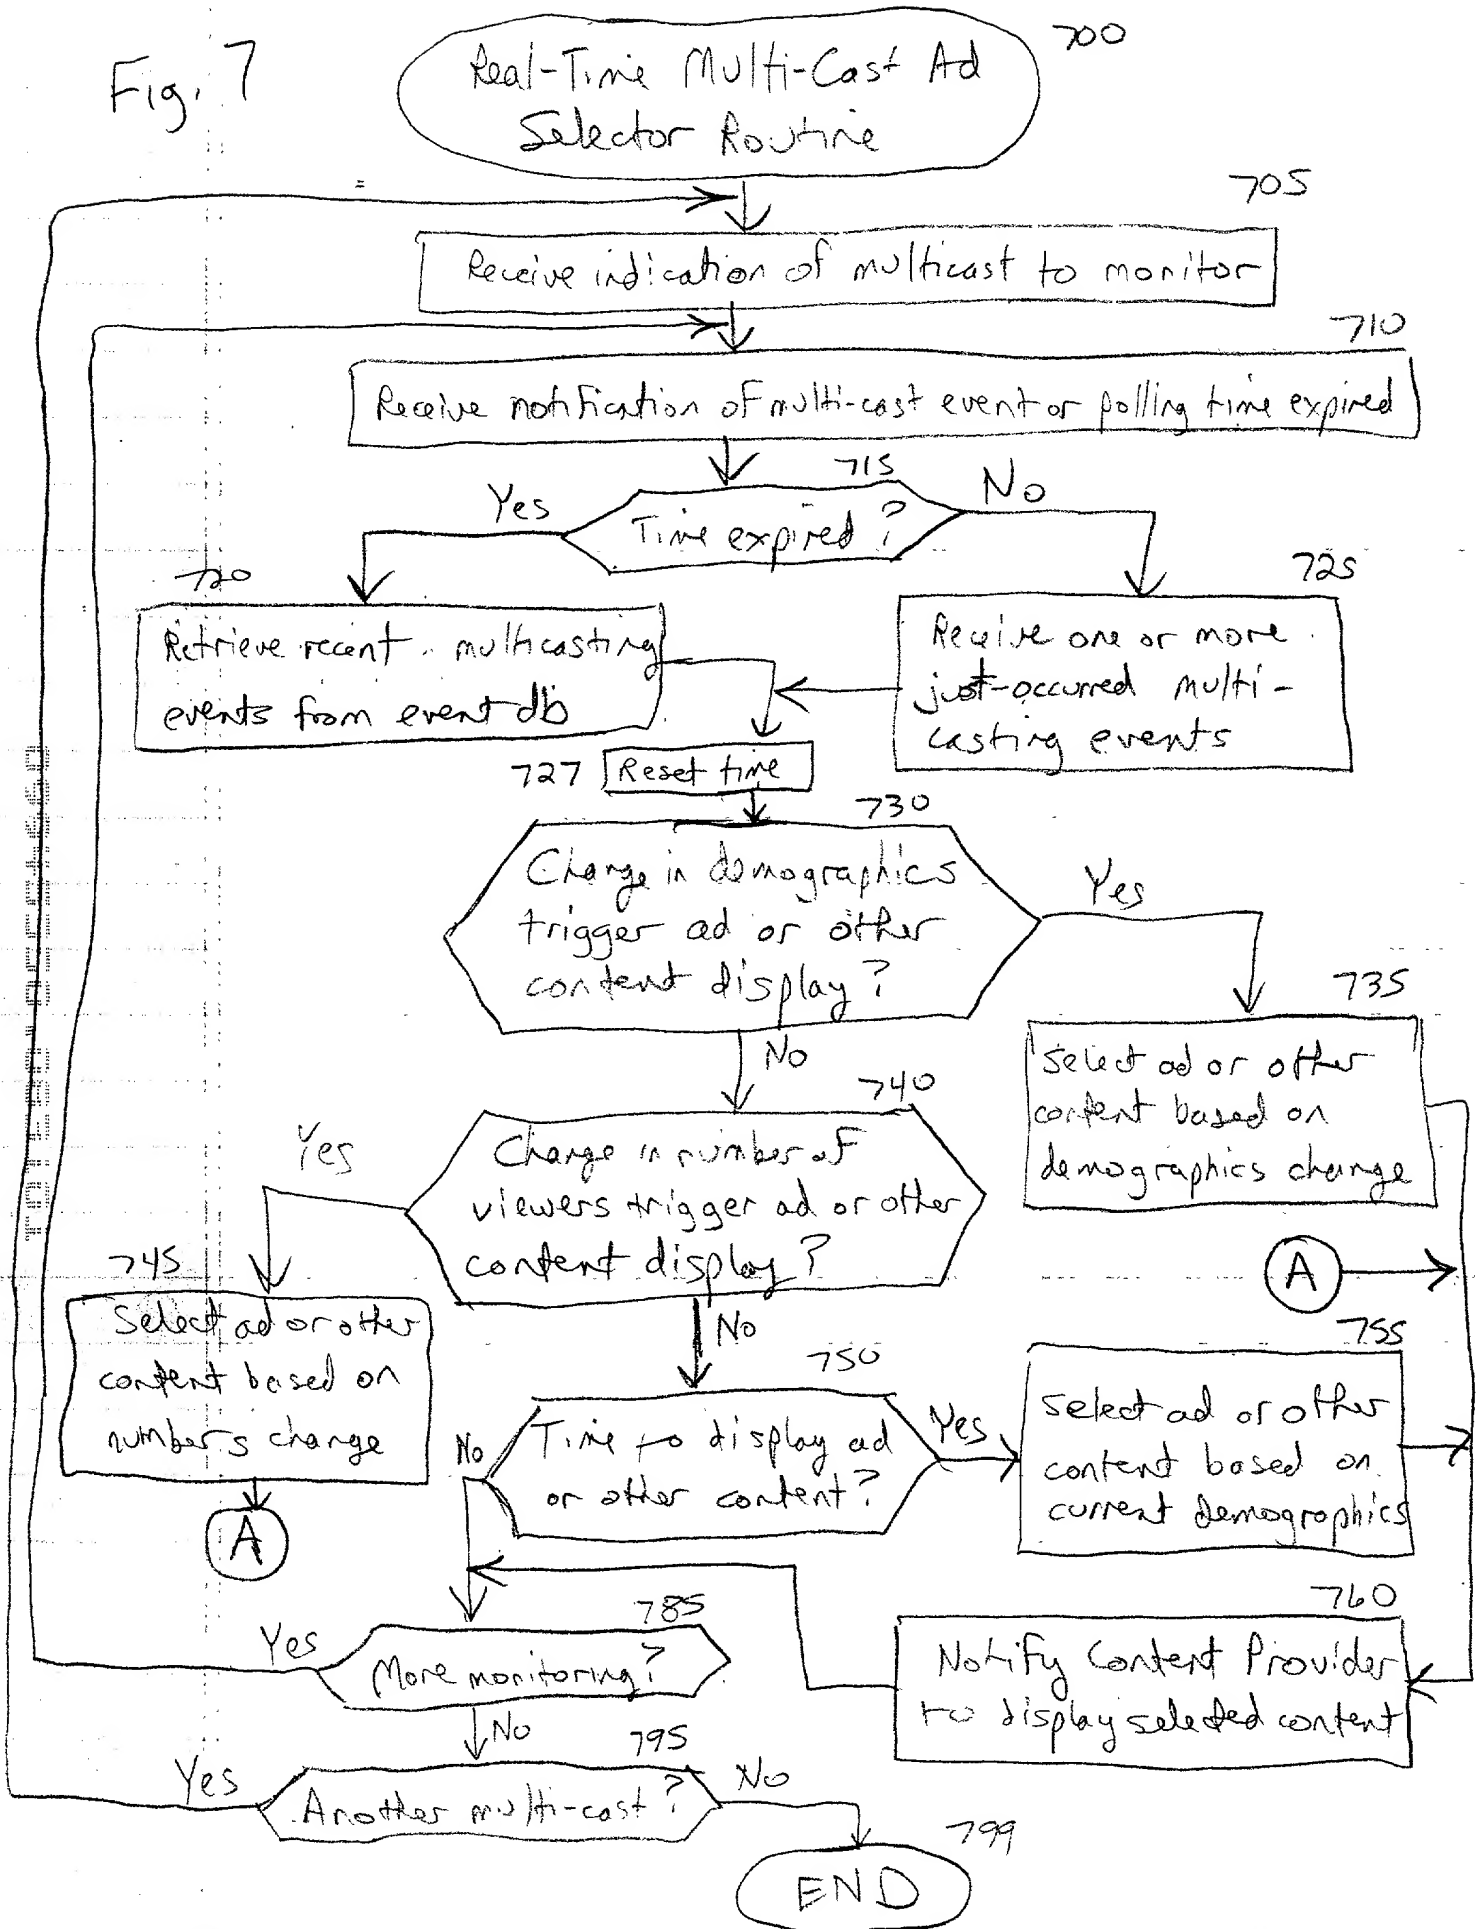 Fig. 7
700
Real-Time Multi-Cast Ad
Selector Routine
705
Receive indication of multicast to monitor
710
Receive notification of multi-cast event or polling time expired
715
Yes
No
Time expired?
720
725
Retrieve recent multicasting
events from event db
Receive one or more
just-occurred multi-
casting events
727
Reset time
730
Change in demographics
trigger ad or other
content display?
Yes
No
735
Select ad or other
content based on
demographics change
740
Yes
Change in number of
viewers trigger ad or other
content display?
No
A
745
Select ad or other
content based on
numbers change
A
750
No
Time to display ad
or other content?
Yes
755
Select ad or other
content based on
current demographics
760
Notify Content Provider
to display selected content
785
Yes
More monitoring?
No
795
Yes
Another multi-cast?
No
799
END